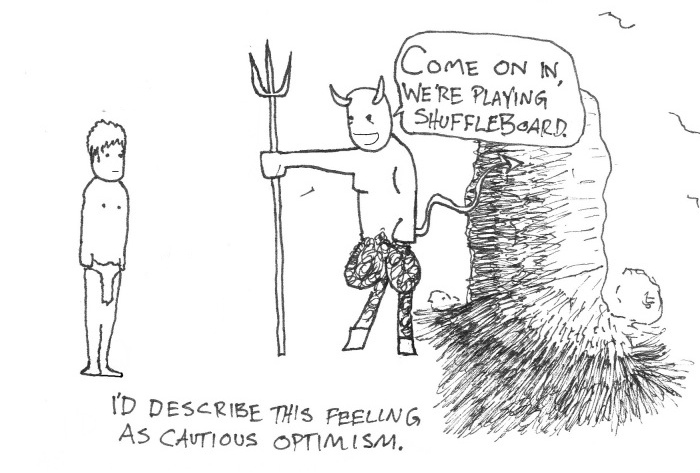 COME ON IN,
WE'RE PLAYING
SHUFFLEBOARD.
I'D DESCRIBE THIS FEELING
AS CAUTIOUS OPTIMISM.